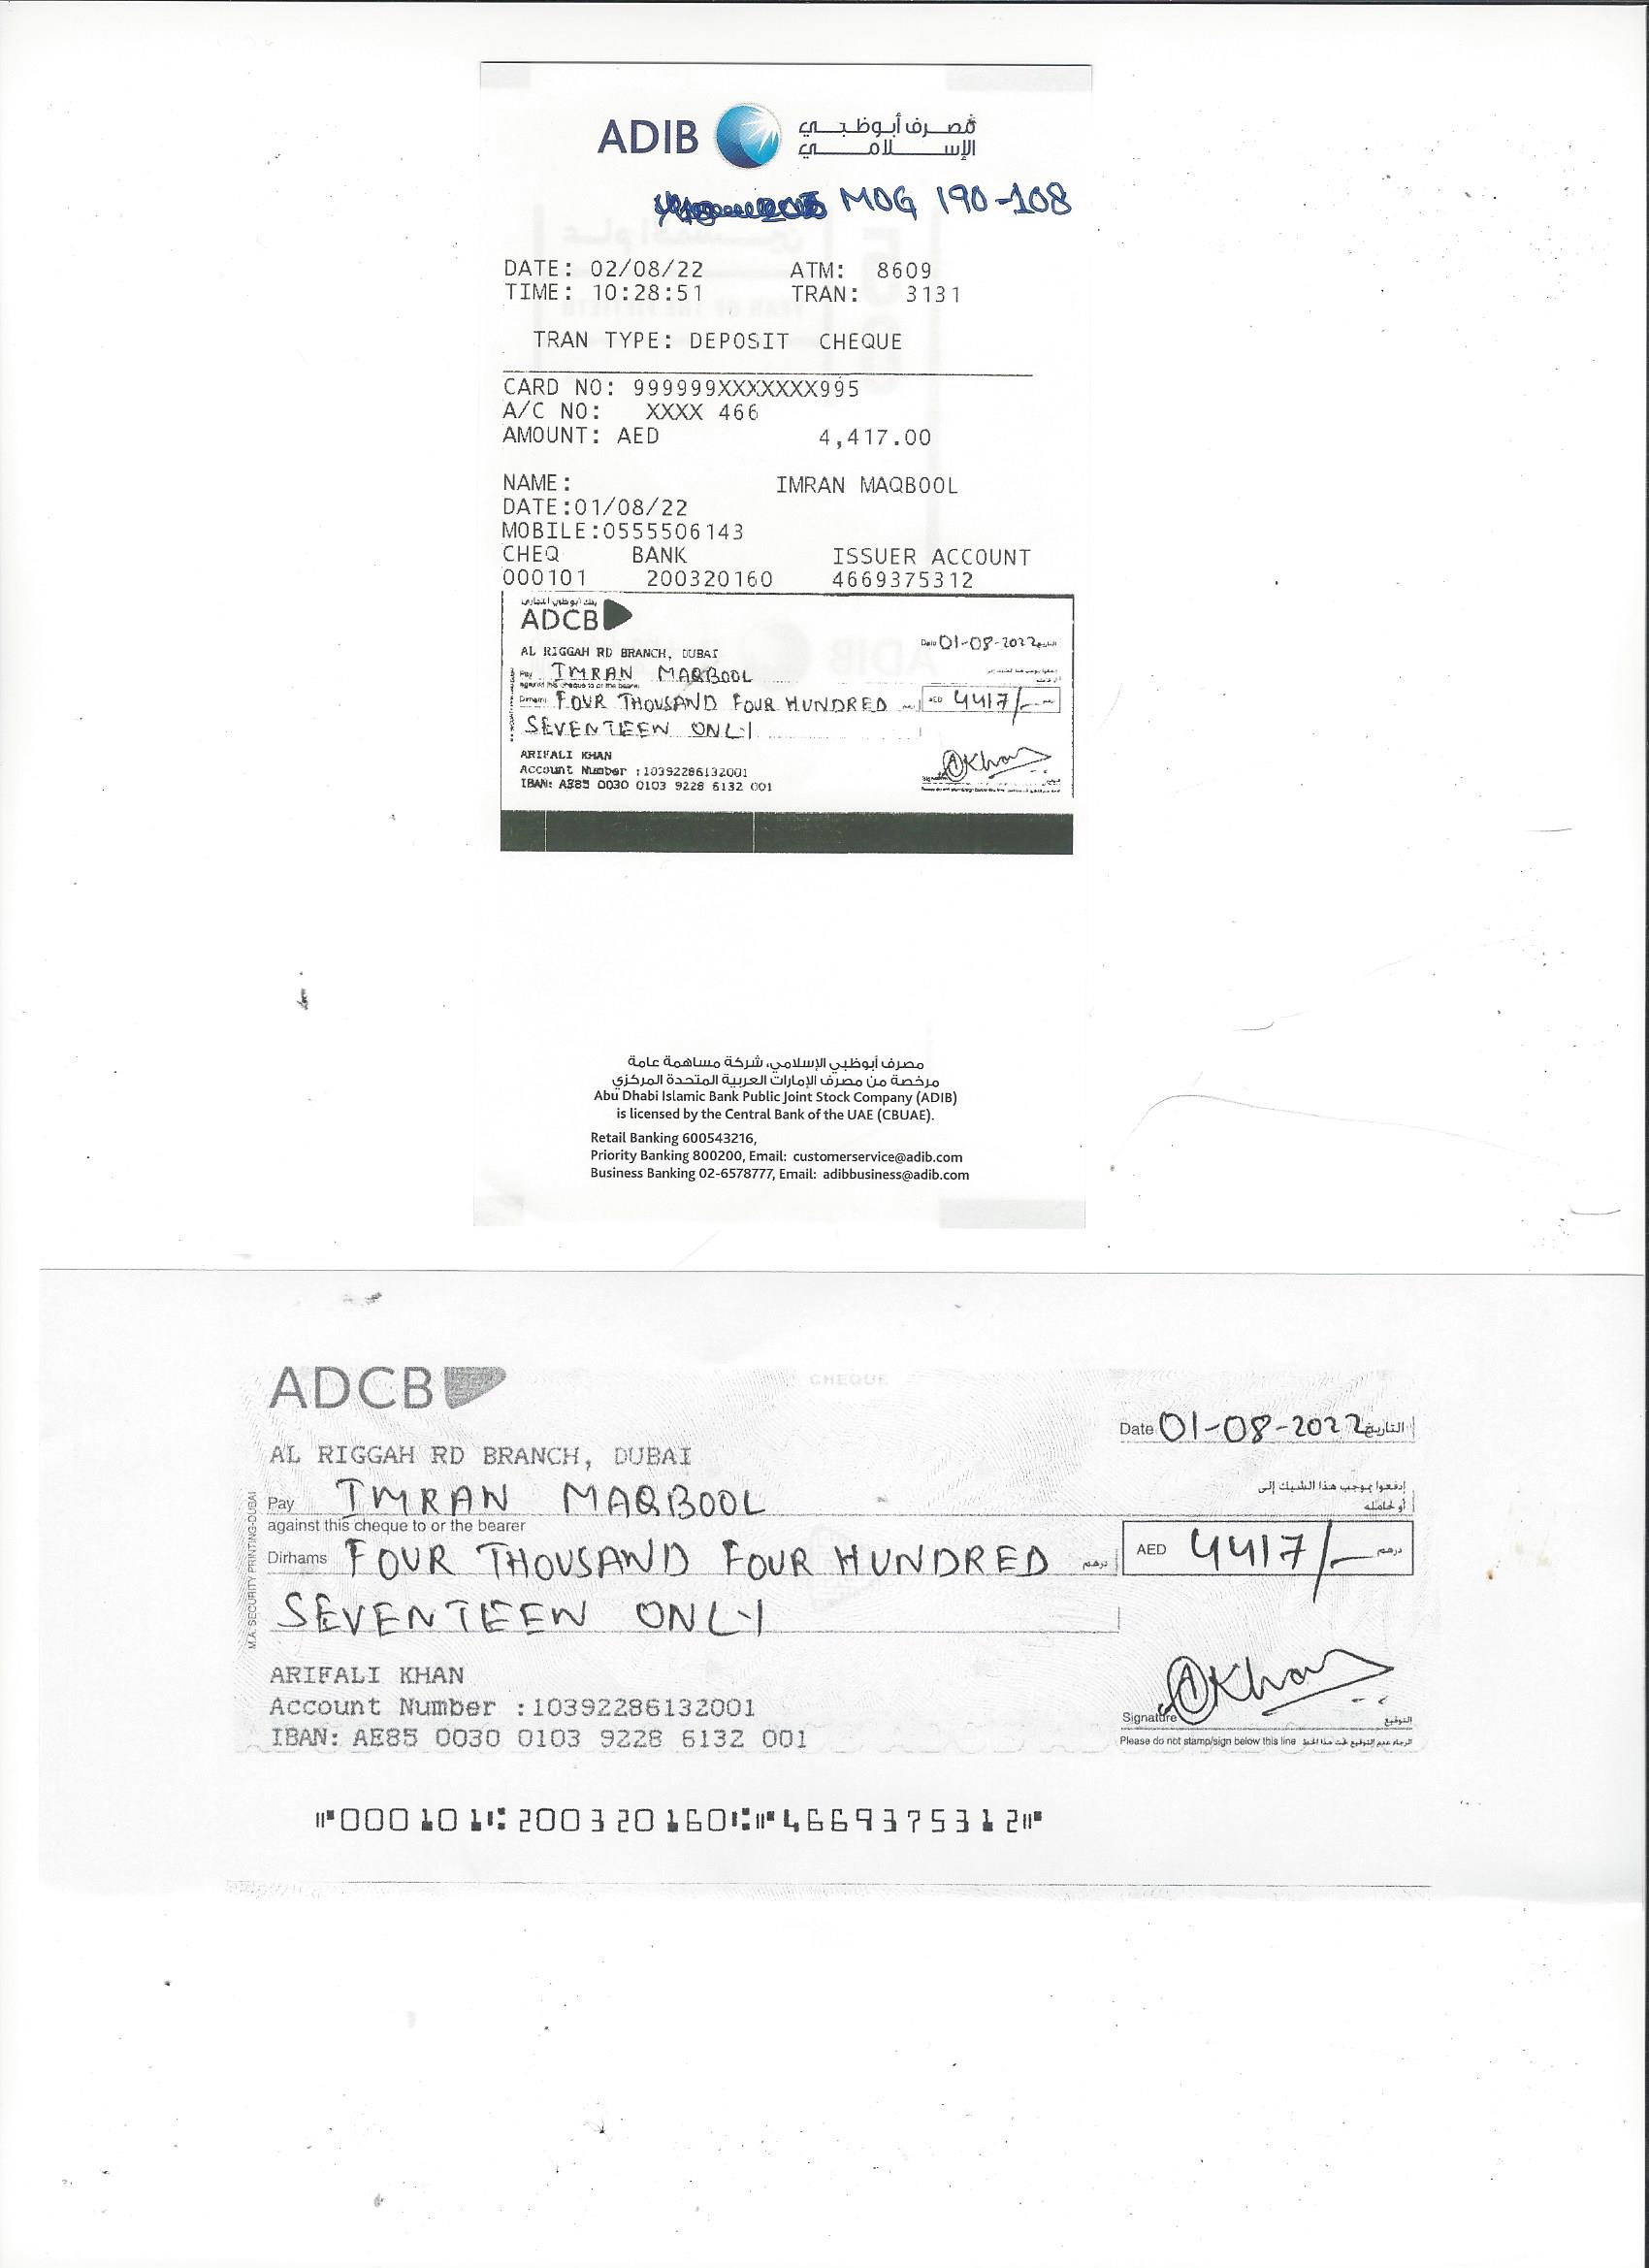 ADIB مصرف أبوظبي
الإسلامي
MOG 190-108
DATE: 02/08/22 ATM: 8609
TIME: 10:28:51 TRAN: 3131
TRAN TYPE: DEPOSIT CHEQUE
CARD NO: 999999XXXXXXX995
A/C NO: XXXX 466
AMOUNT: AED 4,417.00
NAME: IMRAN MAQBOOL
DATE:01/08/22
MOBILE:0555506143
CHEQ BANK ISSUER ACCOUNT
000101 200320160 4669375312
بنك أبوظبي التجاري
ADCB
Date 01-08-2022 التاريخ
AL RIGGAH RD BRANCH, DUBAI
Pay IMRAN MAQBOOL
against this cheque to or the bearer
Dirhams FOUR THOUSAND FOUR HUNDRED AED 4417/-
SEVENTEEN ONLY
ARIFALI KHAN
Account Number :10392286132001
IBAN: AE85 0030 0103 9228 6132 001
AKhan
مصرف أبوظبي الإسلامي، شركة مساهمة عامة
مرخصة من مصرف الإمارات العربية المتحدة المركزي
Abu Dhabi Islamic Bank Public Joint Stock Company (ADIB)
is licensed by the Central Bank of the UAE (CBUAE).
Retail Banking 600543216,
Priority Banking 800200, Email: customerservice@adib.com
Business Banking 02-6578777, Email: adibbusiness@adib.com
ADCB
CHEQUE
Date 01-08-2022 التاريخ
AL RIGGAH RD BRANCH, DUBAI
إدفعوا بموجب هذا الشيك إلى
Pay IMRAN MAQBOOL أو لحامله
against this cheque to or the bearer
Dirhams FOUR THOUSAND FOUR HUNDRED درهم AED 4417/- درهم
SEVENTEEN ONLY
M.A. SECURITY PRINTING-DUBAI
ARIFALI KHAN
Account Number :10392286132001
IBAN: AE85 0030 0103 9228 6132 001
AKhan
Signature التوقيع
Please do not stamp/sign below this line الرجاء عدم التوقيع تحت هذا الخط
000101 200320160 4669375312